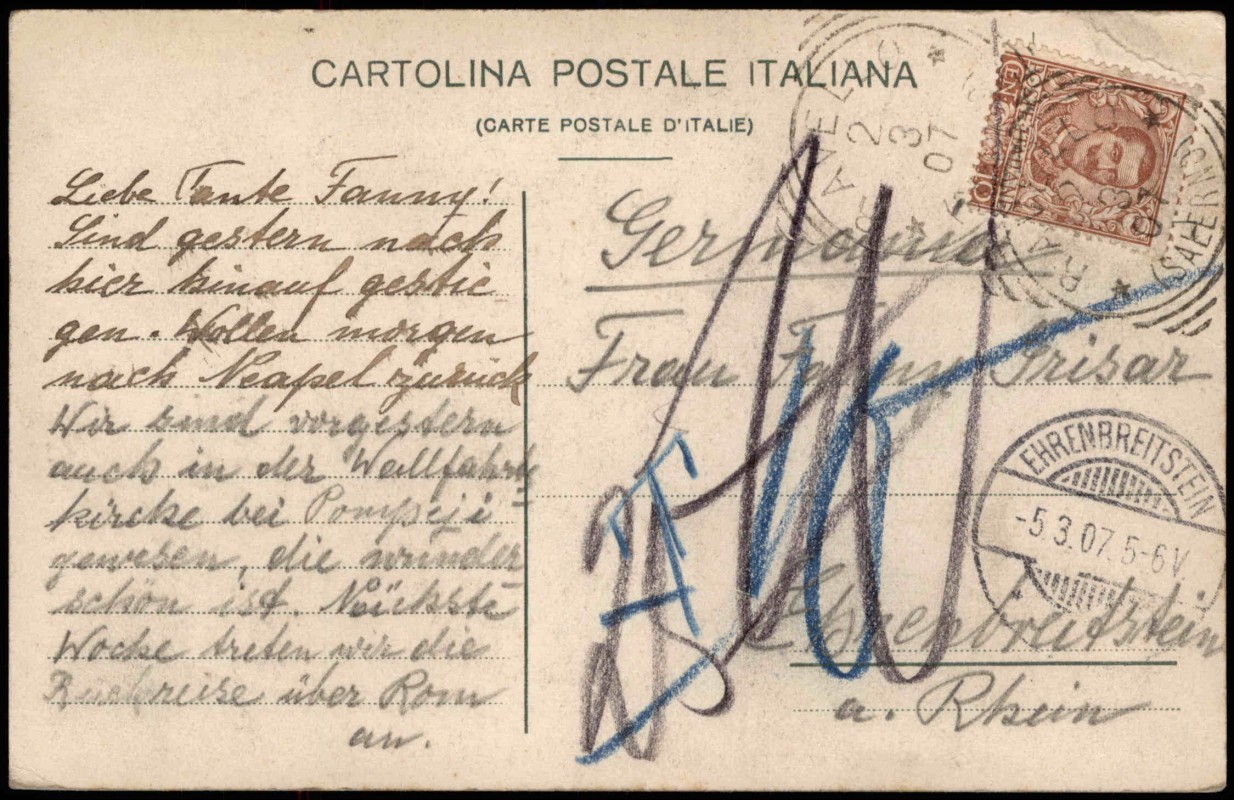 CARTOLINA POSTALE ITALIANA
(CARTE POSTALE D'ITALIE)
Liebe Tante Fanny!
Sind gestern nach
hier hinauf gestie
gen. Wollen morgen
nach Neapel zurück
Wir sind vorgestern
auch in der Wallfahrts
kirche bei Pompeji
gewesen, die wunder
schön ist. Nächste
Woche treten wir die
Rückreise über Rom
an.
Germania
Frau Fanny Grisar
Ehrenbreitstein
a. Rhein
RAVELLO
(SALERNO)
2 3 07
EHRENBREITSTEIN
-5.3.07.5-6V